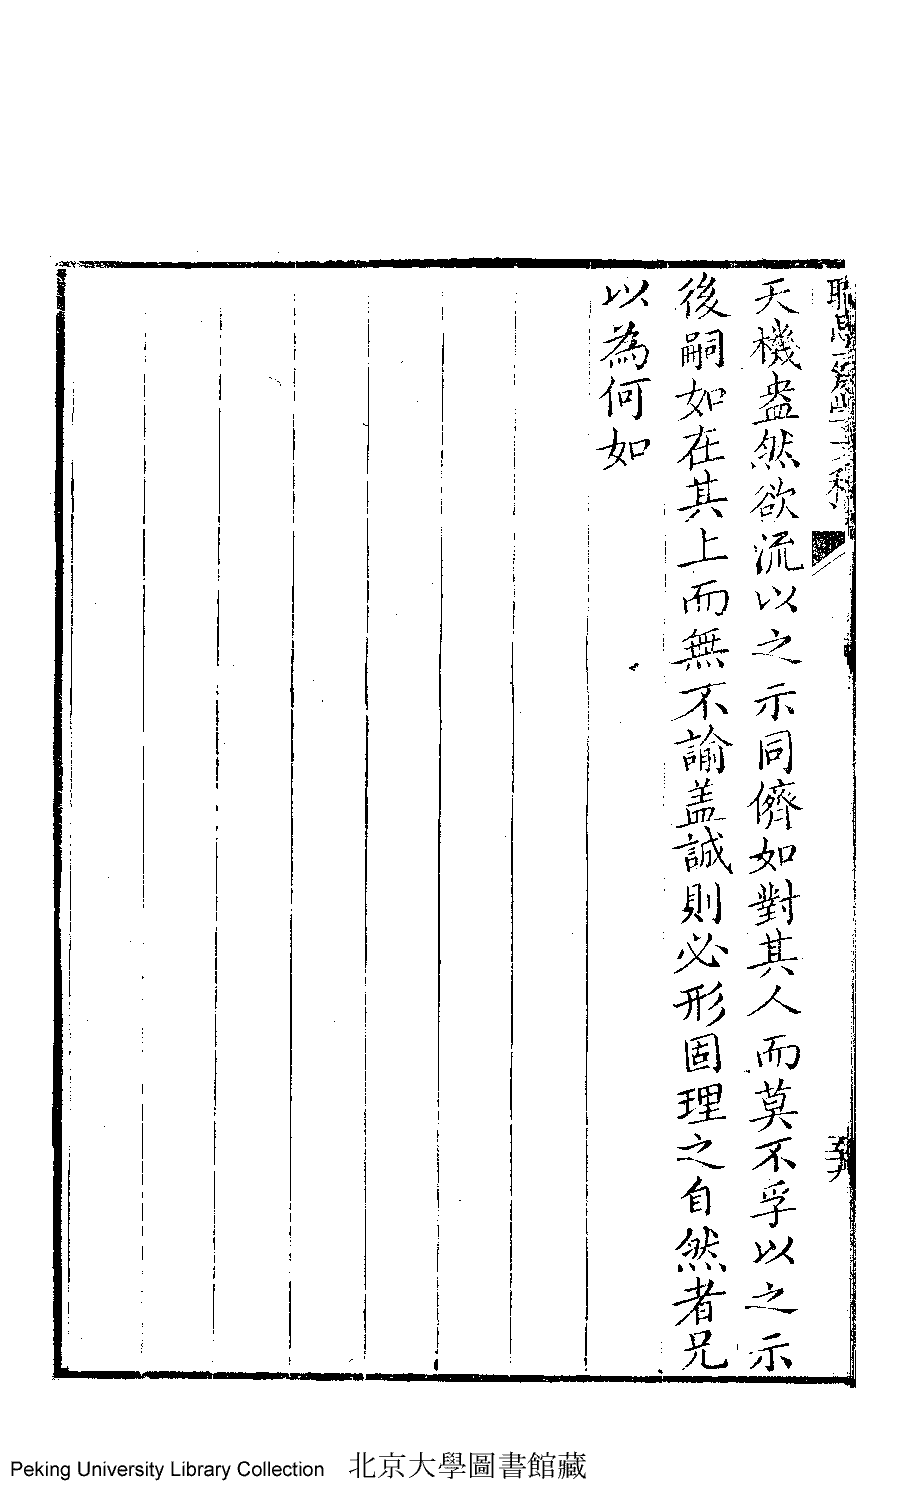 天機盎然欲流以之示同儕如對其人而莫不孚以之示
後嗣如在其上而無不諭盖誠則必形固理之自然者兄
以為何如
Peking University Library Collection 北京大學圖書館藏